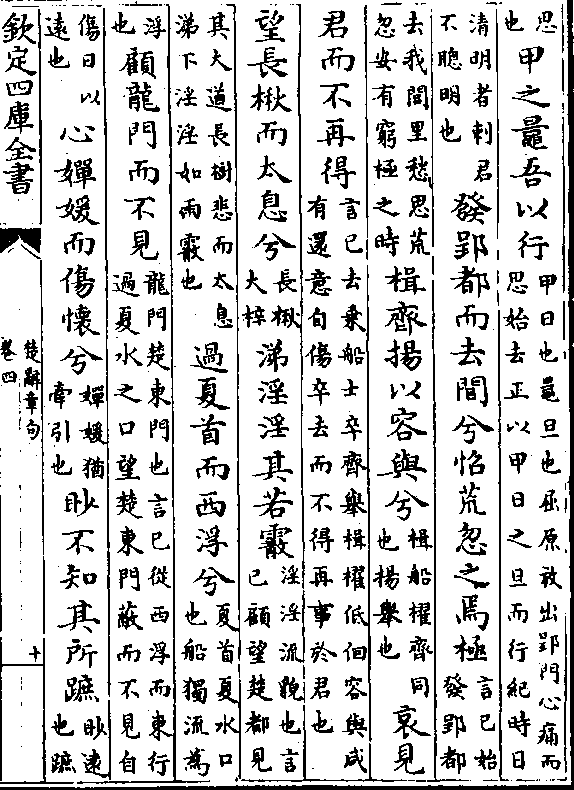 思也甲之鼂吾以行甲日也鼂旦也屈原放出郢門心痛而思始去正以甲日之旦而行紀時日
清明者刺君不聰明也發郢都而去閭兮怊荒忽之焉極言已始發郢都
去我閭里愁思荒忽安有窮極之時楫齊揚以容與兮楫船櫂齊同也揚舉也哀見
君而不再得言已去乘船士卒齊舉楫櫂低佪容與咸有還意自傷卒去而不得再事於君也
望長楸而太息兮長楸大梓涕淫淫其若霰淫淫流貌也言已顧望楚都見
其大道長樹悲而太息涕下淫淫如雨霰也過夏首而西浮兮夏首夏水口也船獨流為
浮也顧龍門而不見龍門楚東門也言已從西浮而東行過夏水之口望楚東門蔽而不見自
傷日以遠也心嬋媛而傷懷兮嬋媛猶牽引也眇不知其所蹠眇遠也蹠
欽定四庫全書
楚辭章句
卷四
十